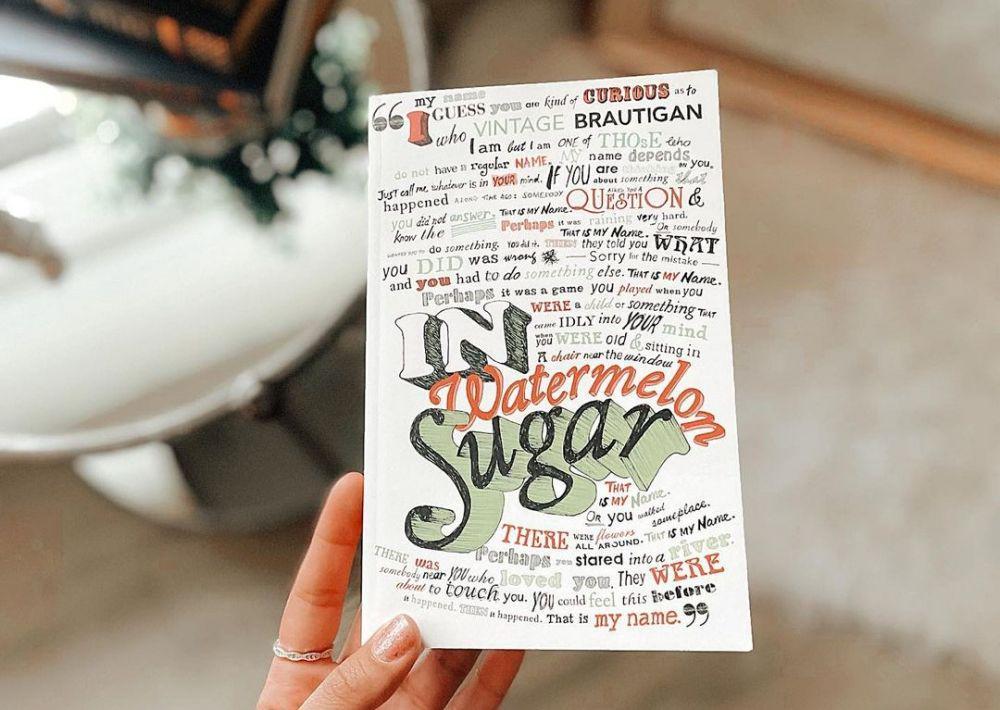 “ my name
I GUESS you are kind of CURIOUS as to
who VINTAGE BRAUTIGAN
I am but I am ONE of THOSE who
do not have a regular NAME. MY name depends on you.
Just call me whatever is in YOUR mind. IF YOU are thinking
about something that
happened A LONG TIME AGO: SOMEBODY ASKED YOU A QUESTION &
you did not answer. THAT IS MY Name.
know the
Perhaps it was raining very hard.
THAT IS MY Name. OR somebody
WANTED YOU TO do something. YOU did it. THEN they told you WHAT
you DID was wrong — Sorry for the mistake —
and you had to do something else. THAT IS MY Name.
Perhaps it was a game you played when you
WERE a child or something THAT
came IDLY into YOUR mind
when you WERE old & sitting in
A chair near the window
IN
Watermelon
Sugar
THAT
IS MY Name.
OR you walked someplace.
THERE WERE flowers
ALL AROUND. THAT IS MY Name.
Perhaps you stared into a river.
THERE was
somebody near YOU who loved you. They WERE
about to touch you. YOU could feel this before
it happened. THEN it happened. That is my name.”